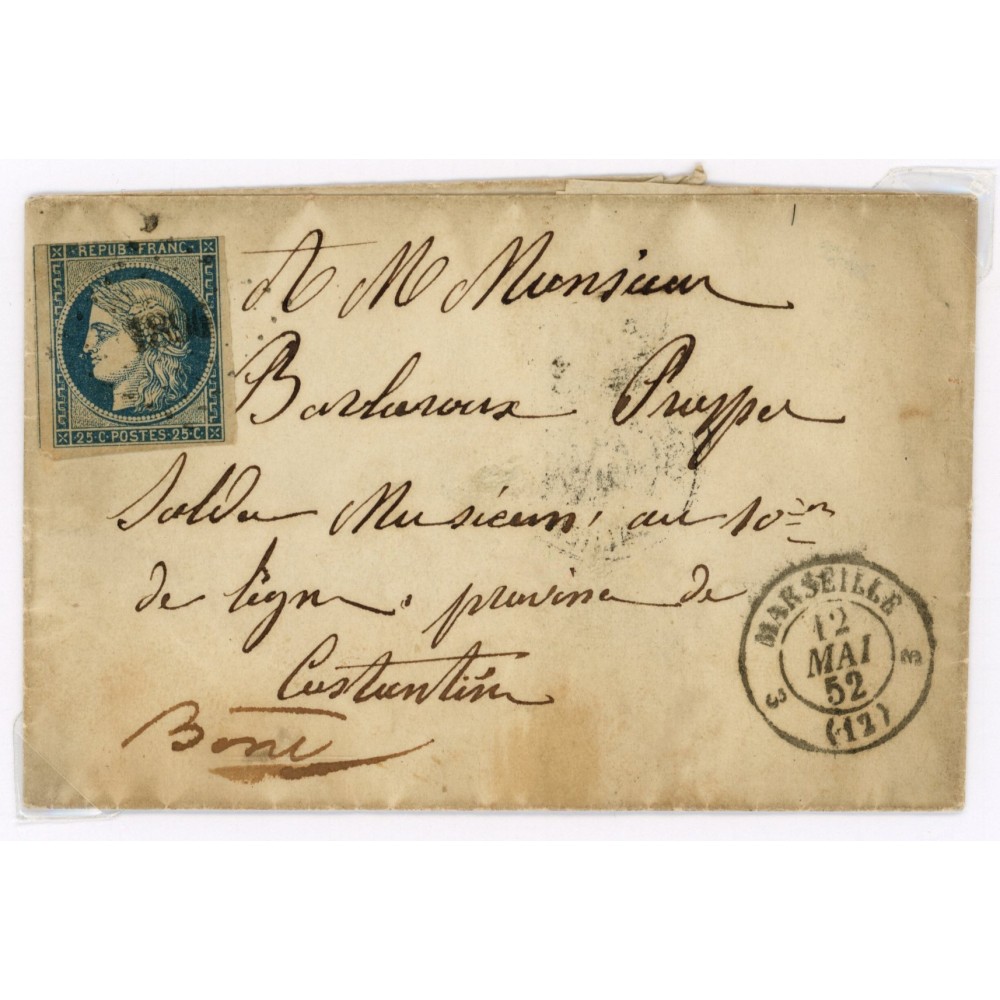 REPUB·FRANC·
25·C·POSTES·25·C·
A M Monsieur
Barlaroux Prosper
Solda Musicien, au 10èm
de lign. province de
Costantine
Bone
MARSEILLE
12
MAI
52
(12)
3 3